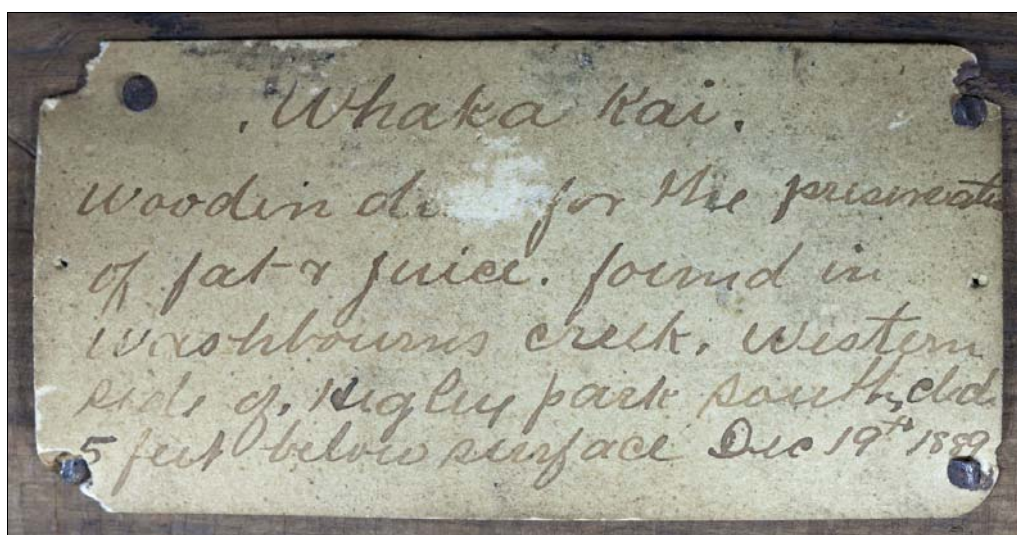 . Whaka Kai.
Wooden for the preservati
of fat & juice. found in
Washbourns creek, Western
side of, Hegley park south,
5 feet below surface Dec 19th 1889